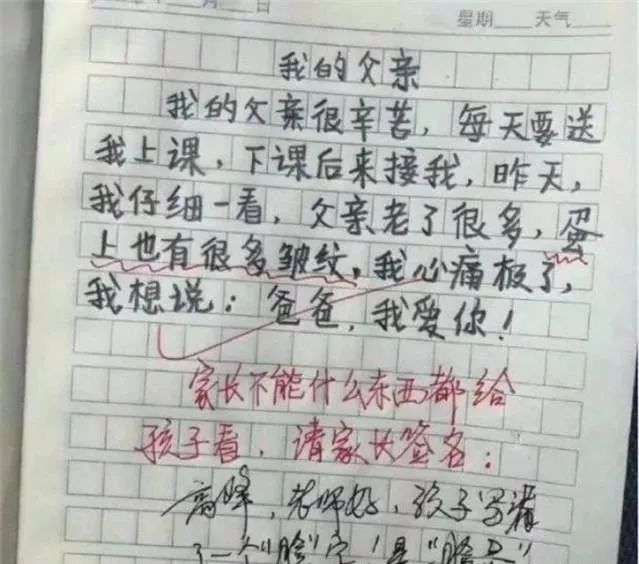 月 日
星期 天气
我的父亲
我的父亲很辛苦，每天要送
我上课，下课后来接我，昨天，
我仔细一看，父亲老了很多，蛋
上也有很多皱纹，我心痛极了，
我想说：爸爸，我爱你！
家长不能什么东西都给
孩子看，请家长签名：
高峰，老师好，孩子写漏
了一个"脸"字！是"脸蛋"